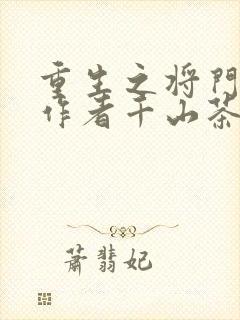 重生之将門
作者千山茶
蕭翡妃